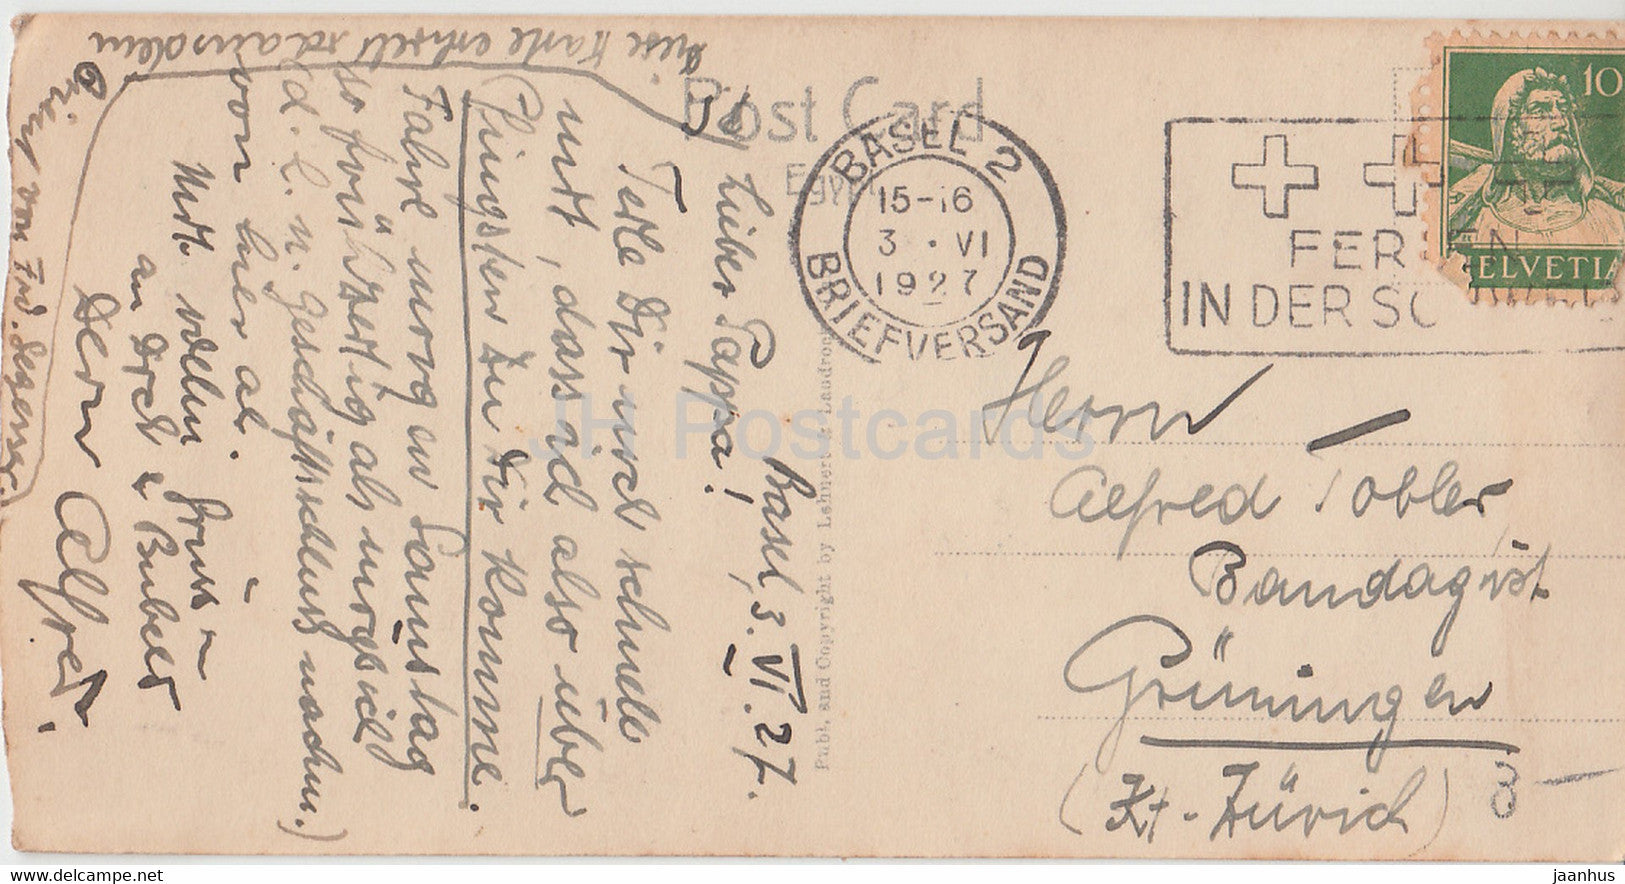 Post Card
Egypt
BASEL 2
15-16
3. VI
1927
BRIEFVERSAND
FERIEN
IN DER SCHWEIZ
10
HELVETIA
Basel, 3. VI. 27.
Lieber Papa!
Teile Dir noch schnell
mit, dass ich also über
Pfingsten zu Dir komme.
Fahre morgen Samstag
so frühzeitig als möglich
von hier ab.
(d. h. n. Geschäftsschluss nachm.)
Mit vielen Grüssen
an Dich & Bubeli
Dein Alfred.
diese Karte erhielt
von Frd.
Publ. and Copyright by Lehnert & Landrock
Herrn
Alfred Tobler,
Bandagist
Grüningen
(Kt. Zürich)
JH Postcards
eu-img.delcampe-store.com
jaanhus